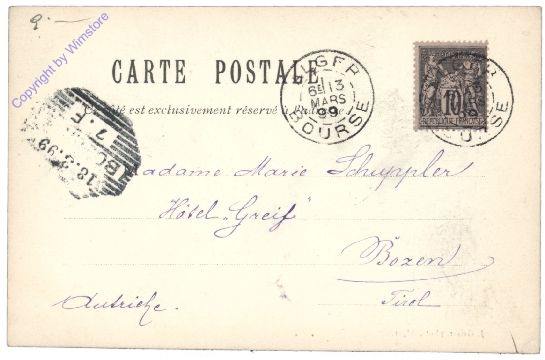 2.-
Copyright by Wimstore
CARTE POSTALE
Ce côté est exclusivement réservé à l'adresse
ALGER
6E 13
MARS
99
BOURSE
10
REPUBLIQUE FRANÇAISE
BOURSE
7.F.
18.3.99
Madame Marie Schuppler
Hôtel „Greif“
Bozen
Tirol
Autriche.